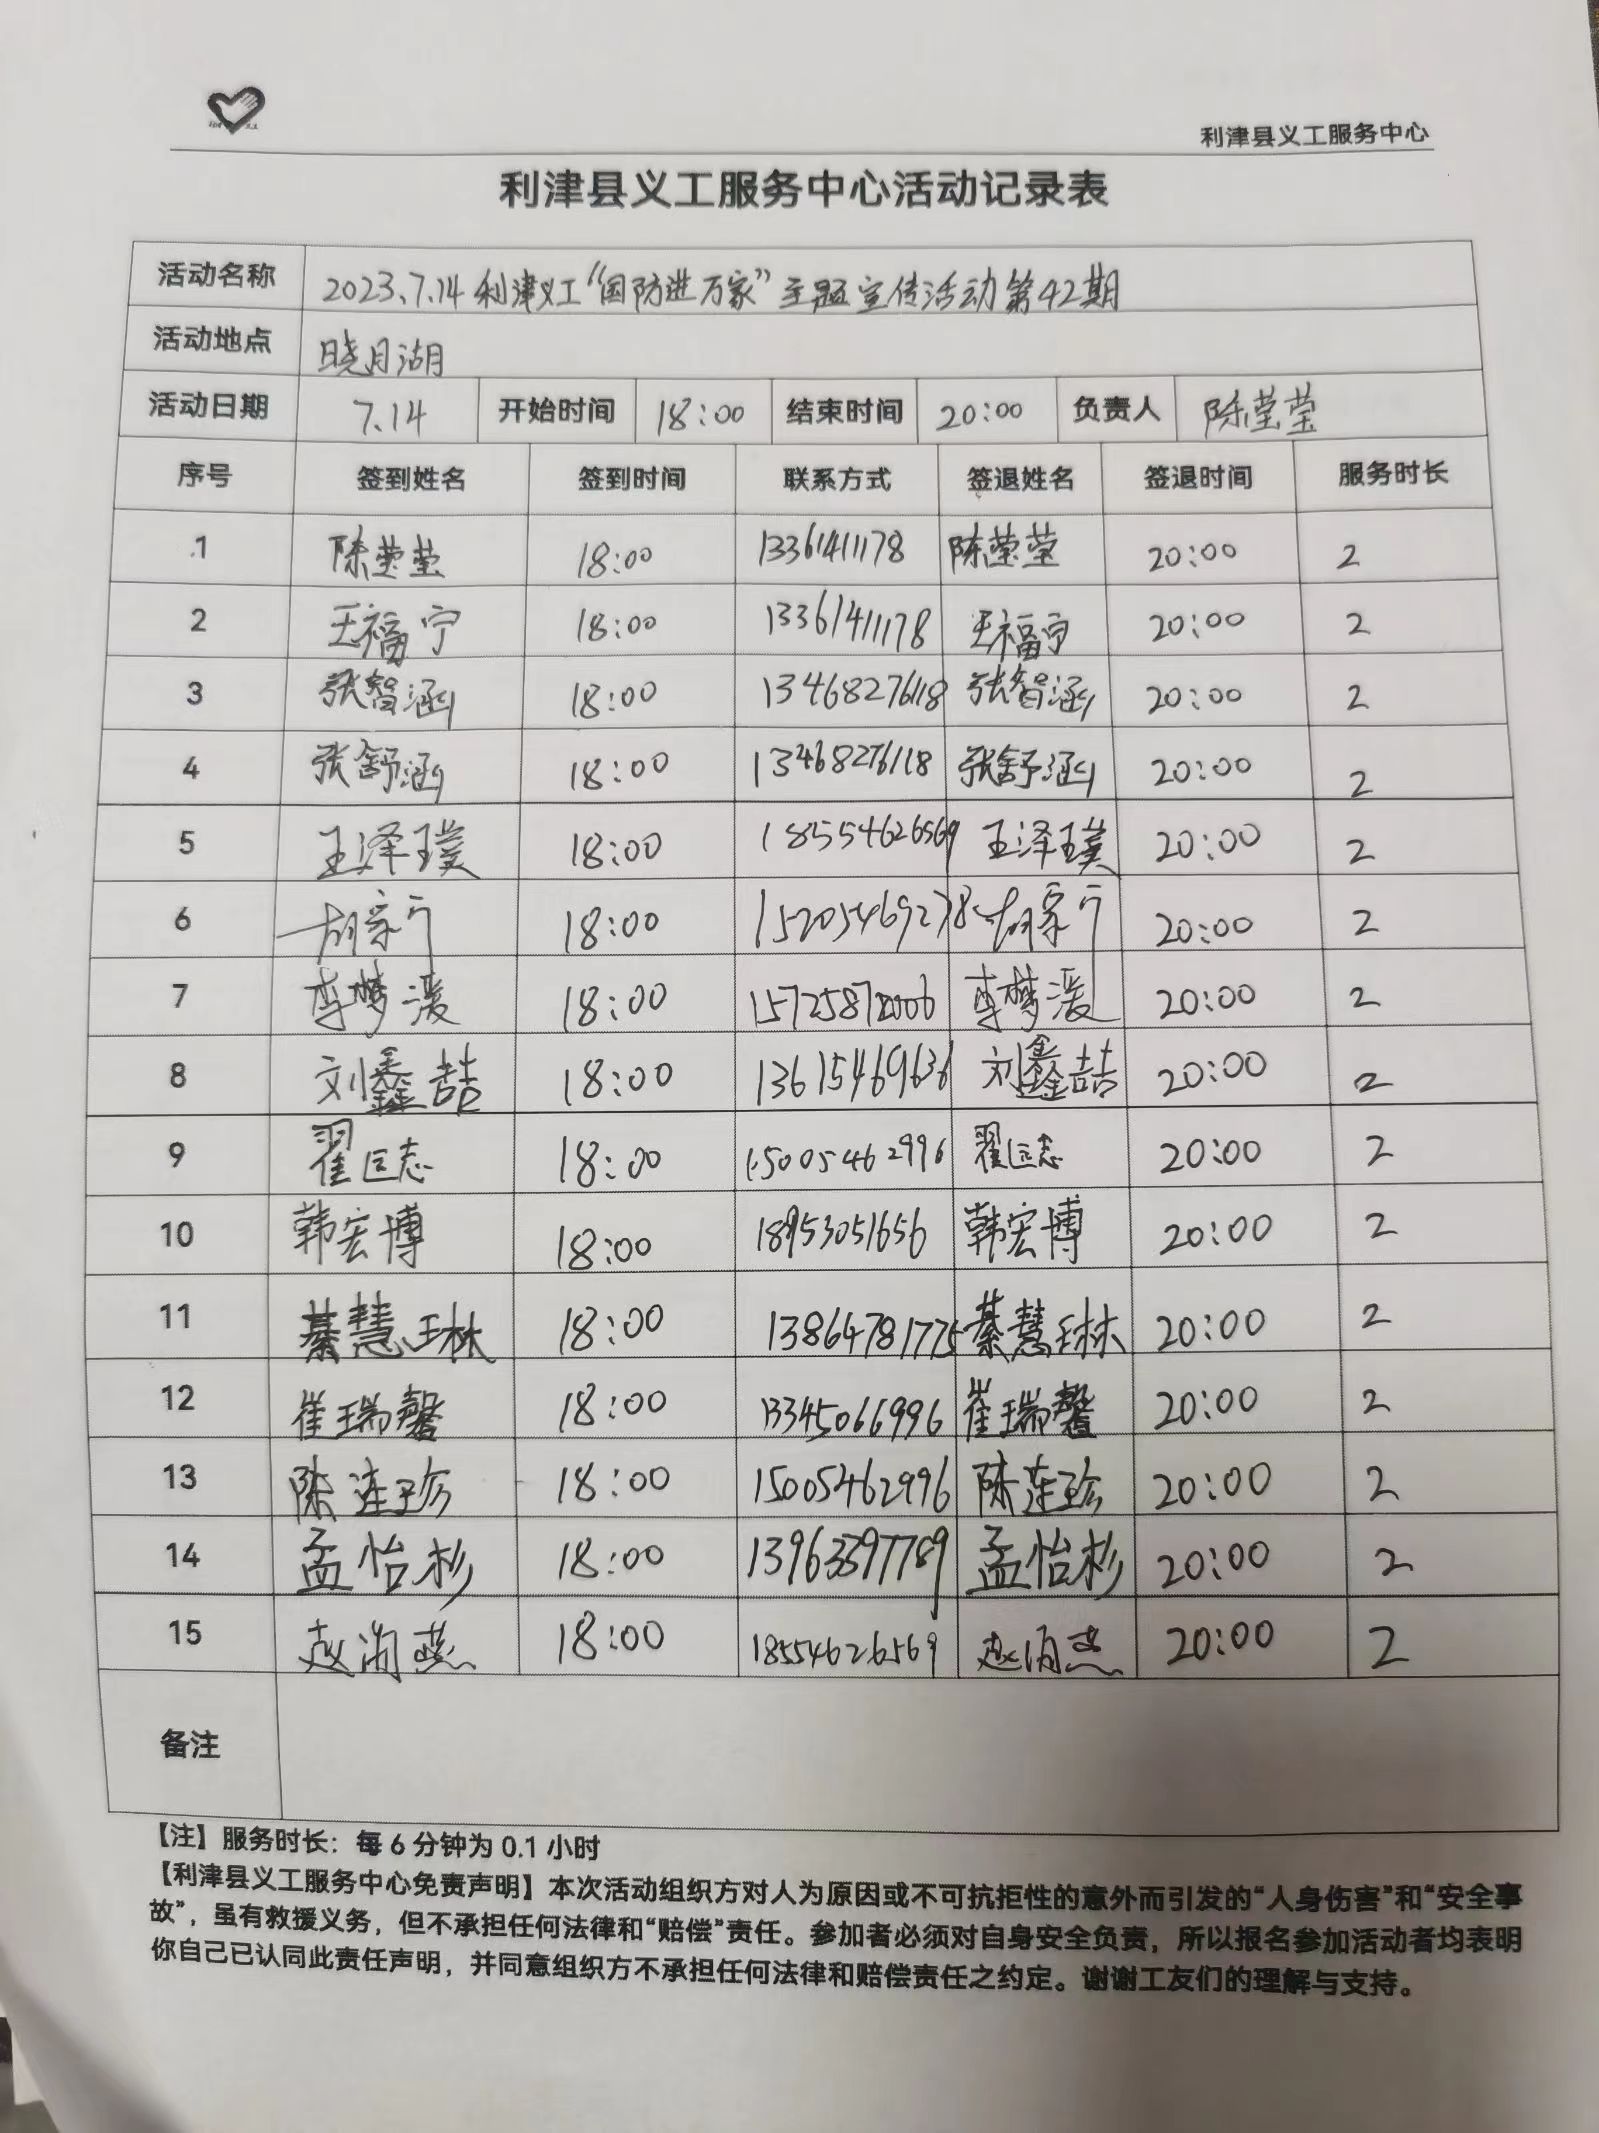 利津县义工服务中心
利津县义工服务中心活动记录表
活动名称 2023.7.14利津义工“国防进万家”主题宣传活动第42期
活动地点 晓月湖
活动日期 7.14 开始时间 18:00 结束时间 20:00 负责人 陈莹莹
序号 签到姓名 签到时间 联系方式 签退姓名 签退时间 服务时长
1 陈莹莹 18:00 13361411178 陈莹莹 20:00 2
2 王福宁 18:00 13361411178 王福宁 20:00 2
3 张智涵 18:00 13468276118 张智涵 20:00 2
4 张舒涵 18:00 13468276118 张舒涵 20:00 2
5 王泽璞 18:00 18554626569 王泽璞 20:00 2
6 胡家 18:00 15205469278 胡家 20:00 2
7 李梦湲 18:00 15725872006 李梦湲 20:00 2
8 刘鑫喆 18:00 13615469636 刘鑫喆 20:00 2
9 翟匡志 18:00 15005462996 翟匡志 20:00 2
10 韩宏博 18:00 18953051656 韩宏博 20:00 2
11 綦慧琳 18:00 13864781775 綦慧琳 20:00 2
12 崔瑞馨 18:00 13345066996 崔瑞馨 20:00 2
13 陈连珍 18:00 15005462996 陈莲珍 20:00 2
14 孟怡杉 18:00 13963397789 孟怡杉 20:00 2
15 赵海燕 18:00 18554626569 赵海燕 20:00 2
备注
【注】服务时长：每 6 分钟为 0.1 小时
【利津县义工服务中心免责声明】本次活动组织方对人为原因或不可抗拒性的意外而引发的“人身伤害”和“安全事
故”，虽有救援义务，但不承担任何法律和“赔偿”责任。参加者必须对自身安全负责，所以报名参加活动者均表明
你自己已认同此责任声明，并同意组织方不承担任何法律和赔偿责任之约定。谢谢工友们的理解与支持。